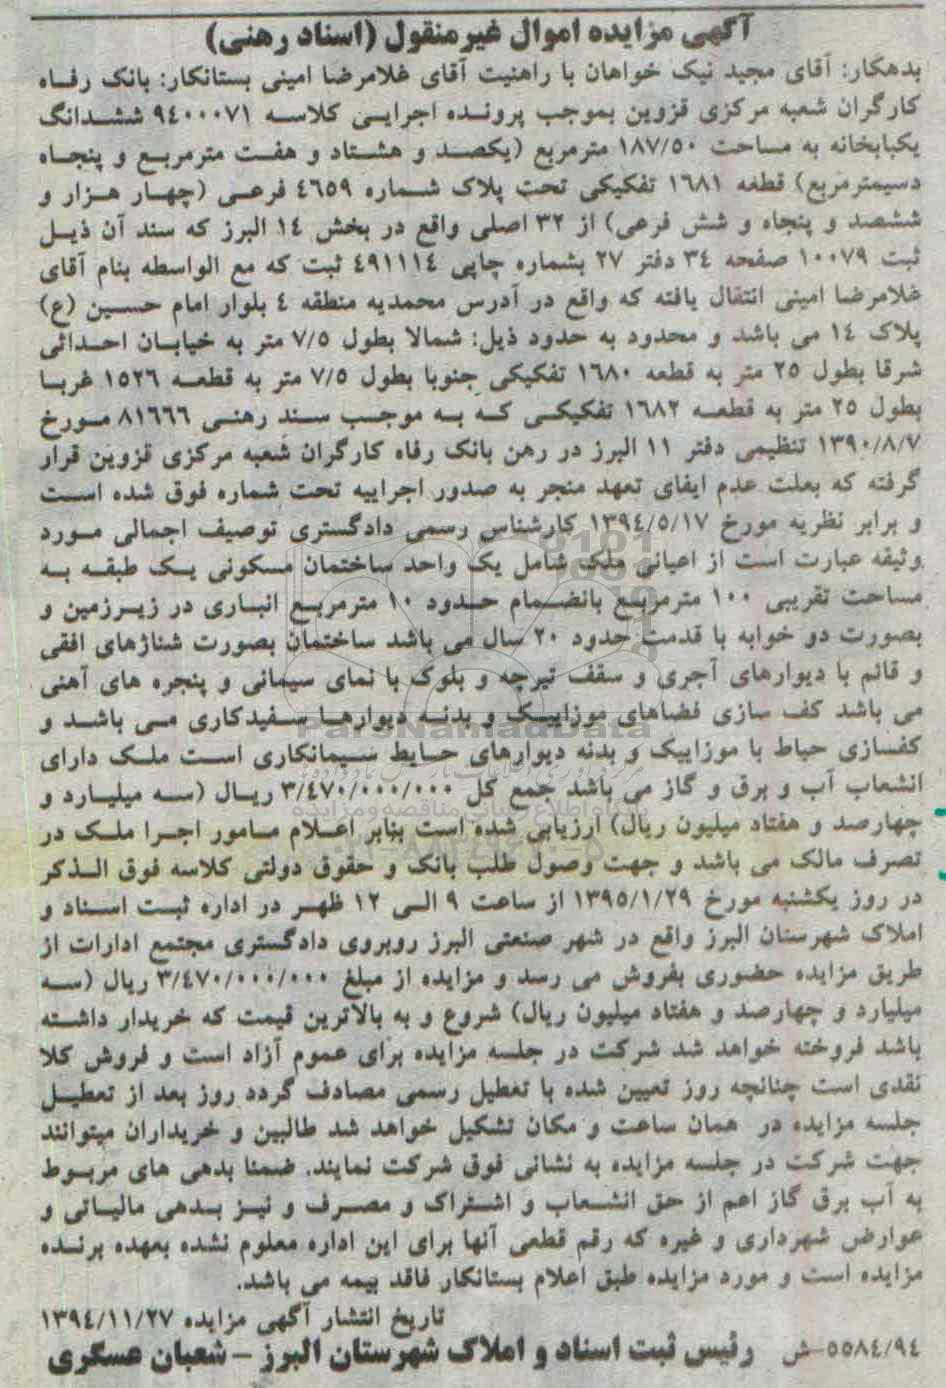 آگهی مزایده اموال غیرمنقول (اسناد رهنی)
بدهکار: آقای مجید نیک خواهان با راهنیت آقای غلامرضا امینی بستانکار: بانک رفاه
کارگران شعبه مرکزی قزوین بموجب پرونده اجرایی کلاسه ۹۴۰۰۰۷۱ ششدانگ
یکبابخانه به مساحت ۱۸۷/۵۰ مترمربع (یکصد و هشتاد و هفت مترمربع و پنجاه
دسیمترمربع) قطعه ۱۶۸۱ تفکیکی تحت پلاک شماره ۴۶۵۹ فرعی (چهار هزار و
ششصد و پنجاه و شش فرعی) از ۳۲ اصلی واقع در بخش ۱۴ البرز که سند آن ذیل
ثبت ۱۰۰۷۹ صفحه ۳۴ دفتر ۲۷ بشماره چاپی ۴۹۱۱۱۴ ثبت که مع الواسطه بنام آقای
غلامرضا امینی انتقال یافته که واقع در آدرس محمدیه منطقه ۴ بلوار امام حسین (ع)
پلاک ۱۴ می باشد و محدود به حدود ذیل: شمالا بطول ۷/۵ متر به خیابان احداثی
شرقا بطول ۲۵ متر به قطعه ۱۶۸۰ تفکیکی جنوبا بطول ۷/۵ متر به قطعه ۱۵۲۶ غربا
بطول ۲۵ متر به قطعه ۱۶۸۲ تفکیکی که به موجب سند رهنی ۸۱۶۶۶ مورخ
۱۳۹۰/۸/۷ تنظیمی دفتر ۱۱ البرز در رهن بانک رفاه کارگران شعبه مرکزی قزوین قرار
گرفته که بعلت عدم ایفای تعهد منجر به صدور اجراییه تحت شماره فوق شده است
و برابر نظریه مورخ ۱۳۹۴/۵/۱۷ کارشناس رسمی دادگستری توصیف اجمالی مورد
وثیقه عبارت است از اعیانی ملک شامل یک واحد ساختمان مسکونی یک طبقه به
مساحت تقریبی ۱۰۰ مترمربع بانضمام حدود ۱۰ مترمربع انباری در زیرزمین و
بصورت دو خوابه با قدمت حدود ۲۰ سال می باشد ساختمان بصورت شناژهای افقی
و قائم با دیوارهای آجری و سقف تیرچه و بلوک با نمای سیمانی و پنجره های آهنی
می باشد کف سازی فضاهای موزاییک و بدنه دیوارها سفیدکاری می باشد و
ParsNamadData
کفسازی حیاط با موزاییک و بدنه دیوارهای حایط سیمانکاری است ملک دارای
انشعاب آب و برق و گاز می باشد جمع کل ۳/۴۷۰/۰۰۰/۰۰۰ ریال (سه میلیارد و
چهارصد و هفتاد میلیون ریال) ارزیابی شده است بنابر اعلام مامور اجرا ملک در
تصرف مالک می باشد و جهت وصول طلب بانک و حقوق دولتی کلاسه فوق الذکر
در روز یکشنبه مورخ ۱۳۹۵/۱/۲۹ از ساعت ۹ الی ۱۲ ظهر در اداره ثبت اسناد و
املاک شهرستان البرز واقع در شهر صنعتی البرز روبروی دادگستری مجتمع ادارات از
طریق مزایده حضوری بفروش می رسد و مزایده از مبلغ ۳/۴۷۰/۰۰۰/۰۰۰ ریال (سه
میلیارد و چهارصد و هفتاد میلیون ریال) شروع و به بالاترین قیمت که خریدار داشته
باشد فروخته خواهد شد شرکت در جلسه مزایده برای عموم آزاد است و فروش کلا
نقدی است چنانچه روز تعیین شده با تعطیل رسمی مصادف گردد روز بعد از تعطیل
جلسه مزایده در همان ساعت و مکان تشکیل خواهد شد طالبین و خریداران میتوانند
جهت شرکت در جلسه مزایده به نشانی فوق شرکت نمایند. ضمنا بدهی های مربوط
به آب برق گاز اعم از حق انشعاب و اشتراک و مصرف و نیز بدهی مالیاتی و
عوارض شهرداری و غیره که رقم قطعی آنها برای این اداره معلوم نشده بعهده برنده
مزایده است و مورد مزایده طبق اعلام بستانکار فاقد بیمه می باشد.
تاریخ انتشار آگهی مزایده ۱۳۹۴/۱۱/۲۷
۵۵۸۴/۹۴-ش رئیس ثبت اسناد و املاک شهرستان البرز - شعبان عسگری